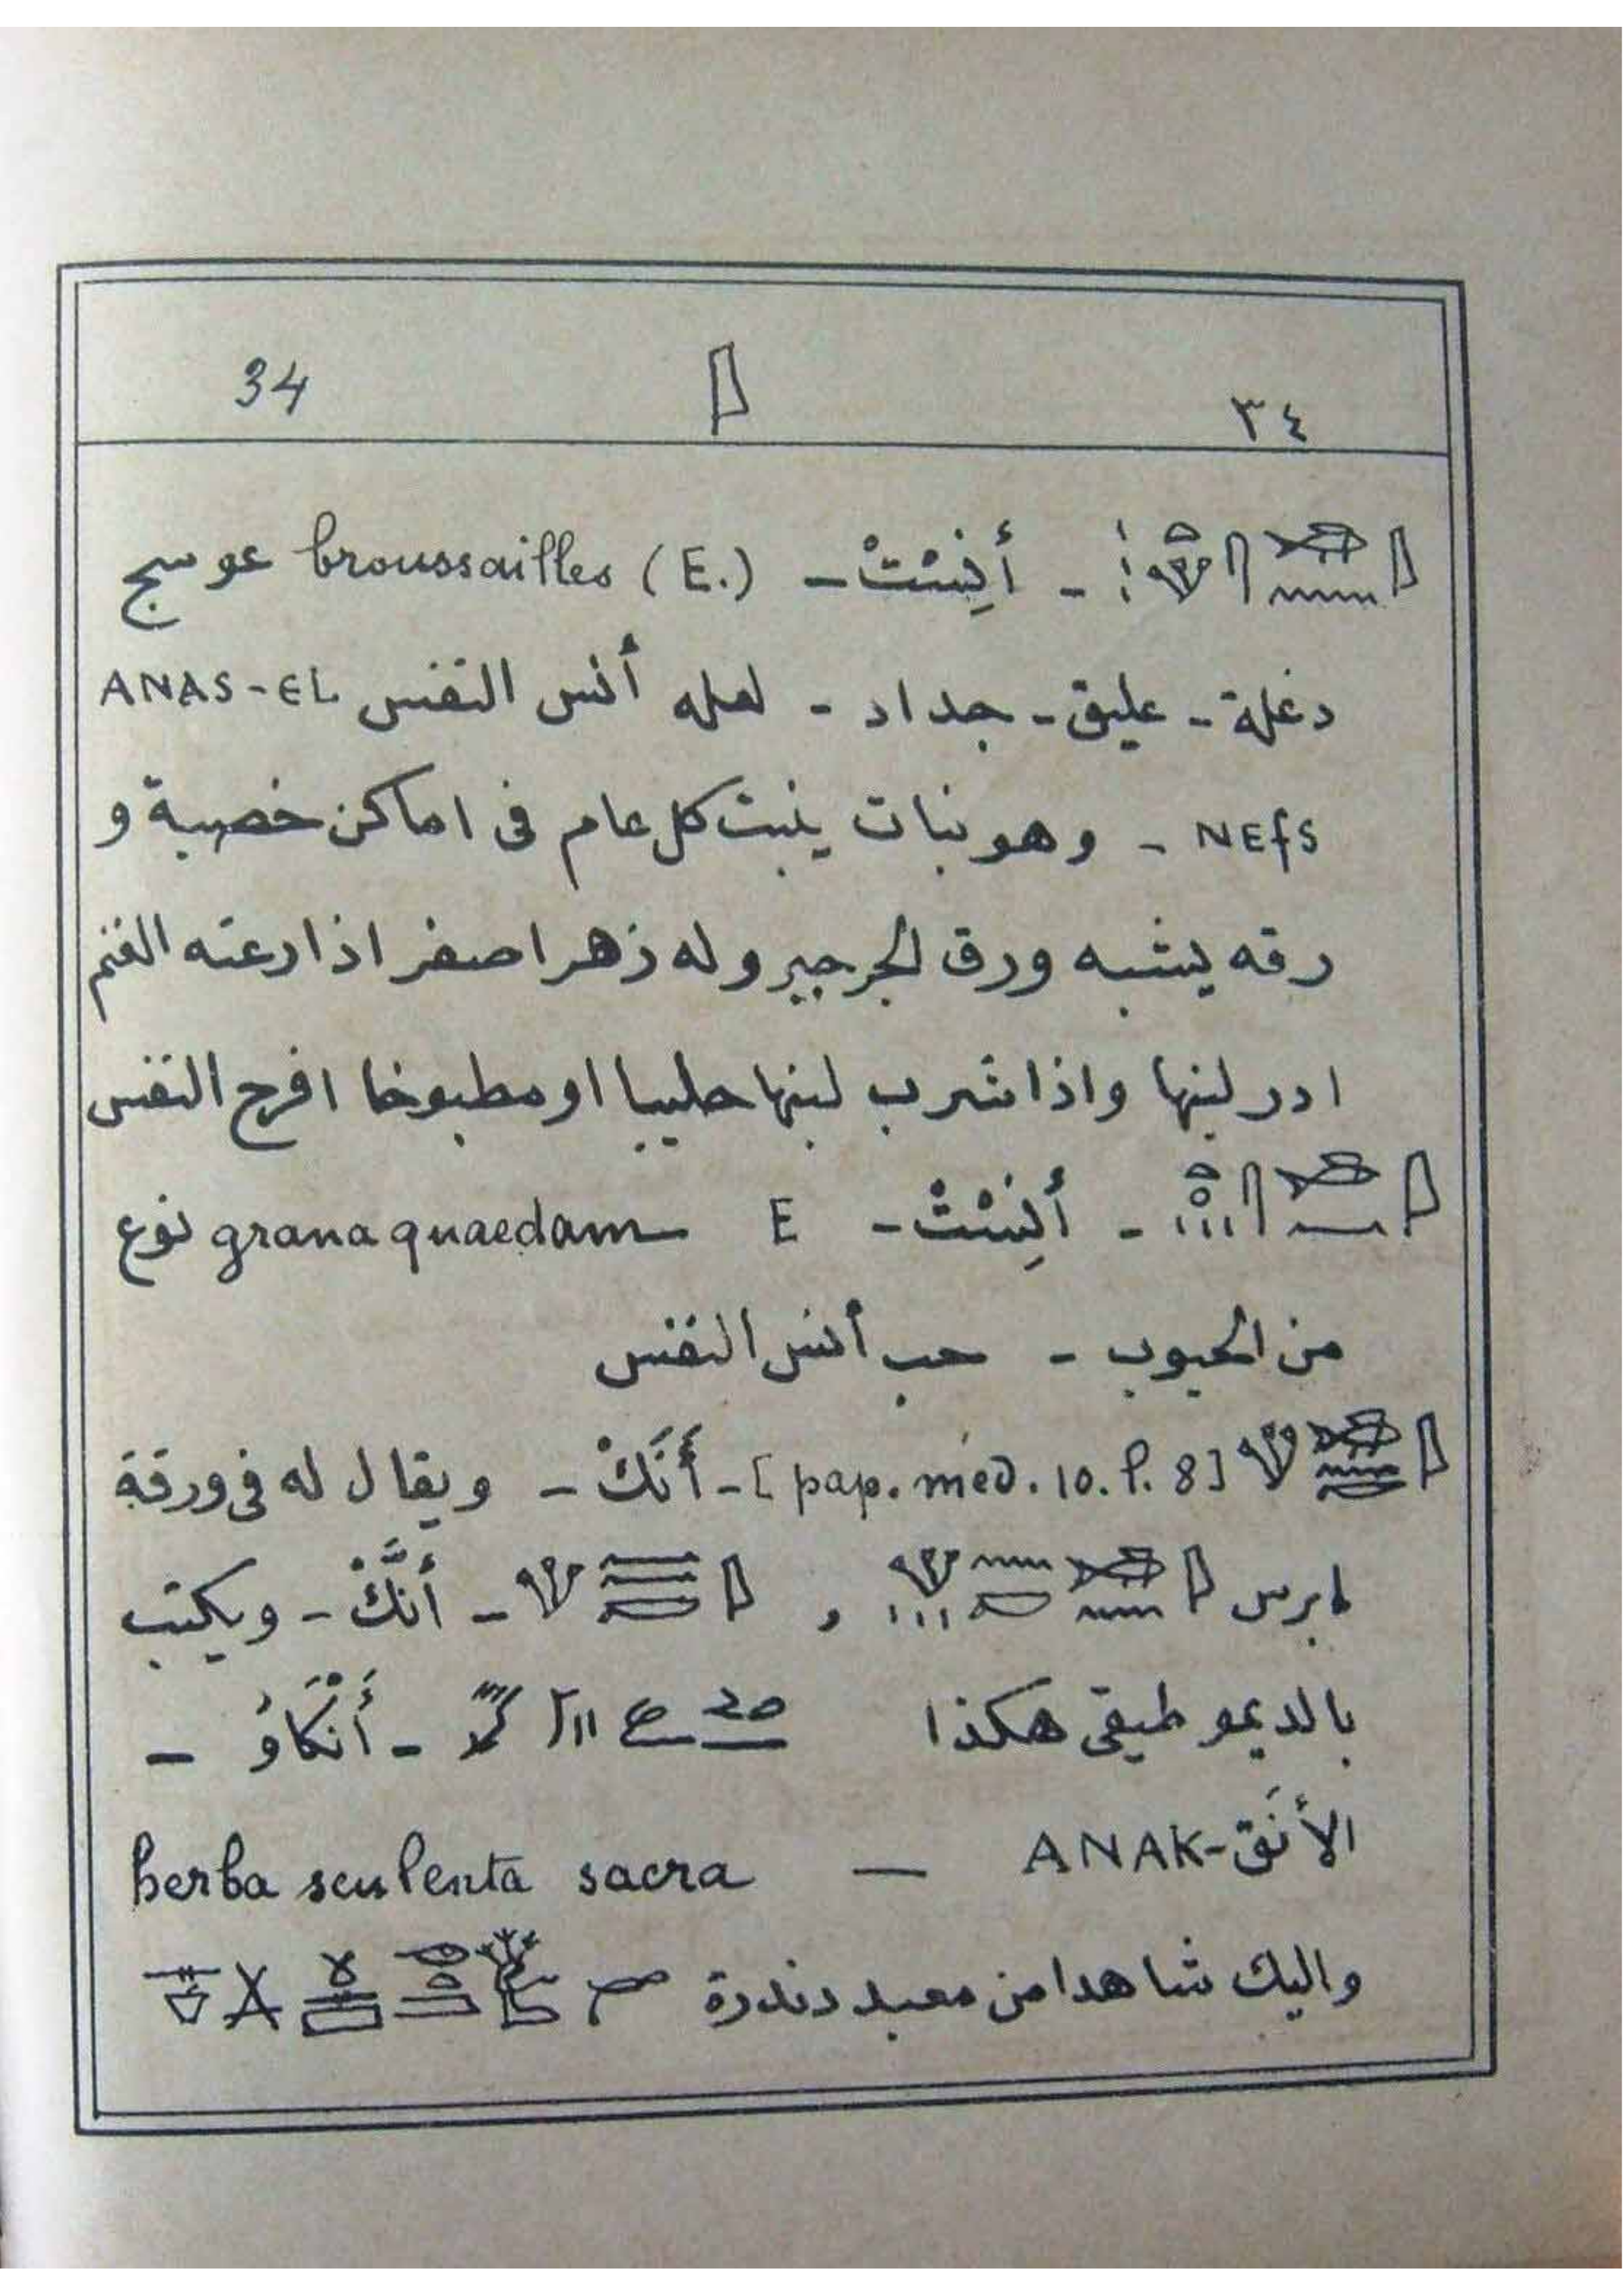 34 ٣٤
أَنِسْتْ - broussailles (E.) عوسج
دغلة - عليق - جداد - لعله أنس النفس ANAS-EL
NEfS - وهو نبات ينبت كل عام فى اماكن خصبة و
رقه يشبه ورق الجرجير وله زهر اصفر اذا رعته الغنم
ادر لبنها واذا شرب لبنها حليبا او مطبوخا افرح النفس
- أَنِسْتْ - E grana quaedam نوع
من الحبوب - حب أنس النفس
[pap. méd. 10. l. 8] - أَنَكْ - ويقال له فى ورقة
ابرس , - أَنَّكْ - ويكتب
بالديموطيقى هكذا - أَنْكَاوُ -
الأنَق - ANAK — herba seulenta sacra
واليك شاهدا من معبد دندرة